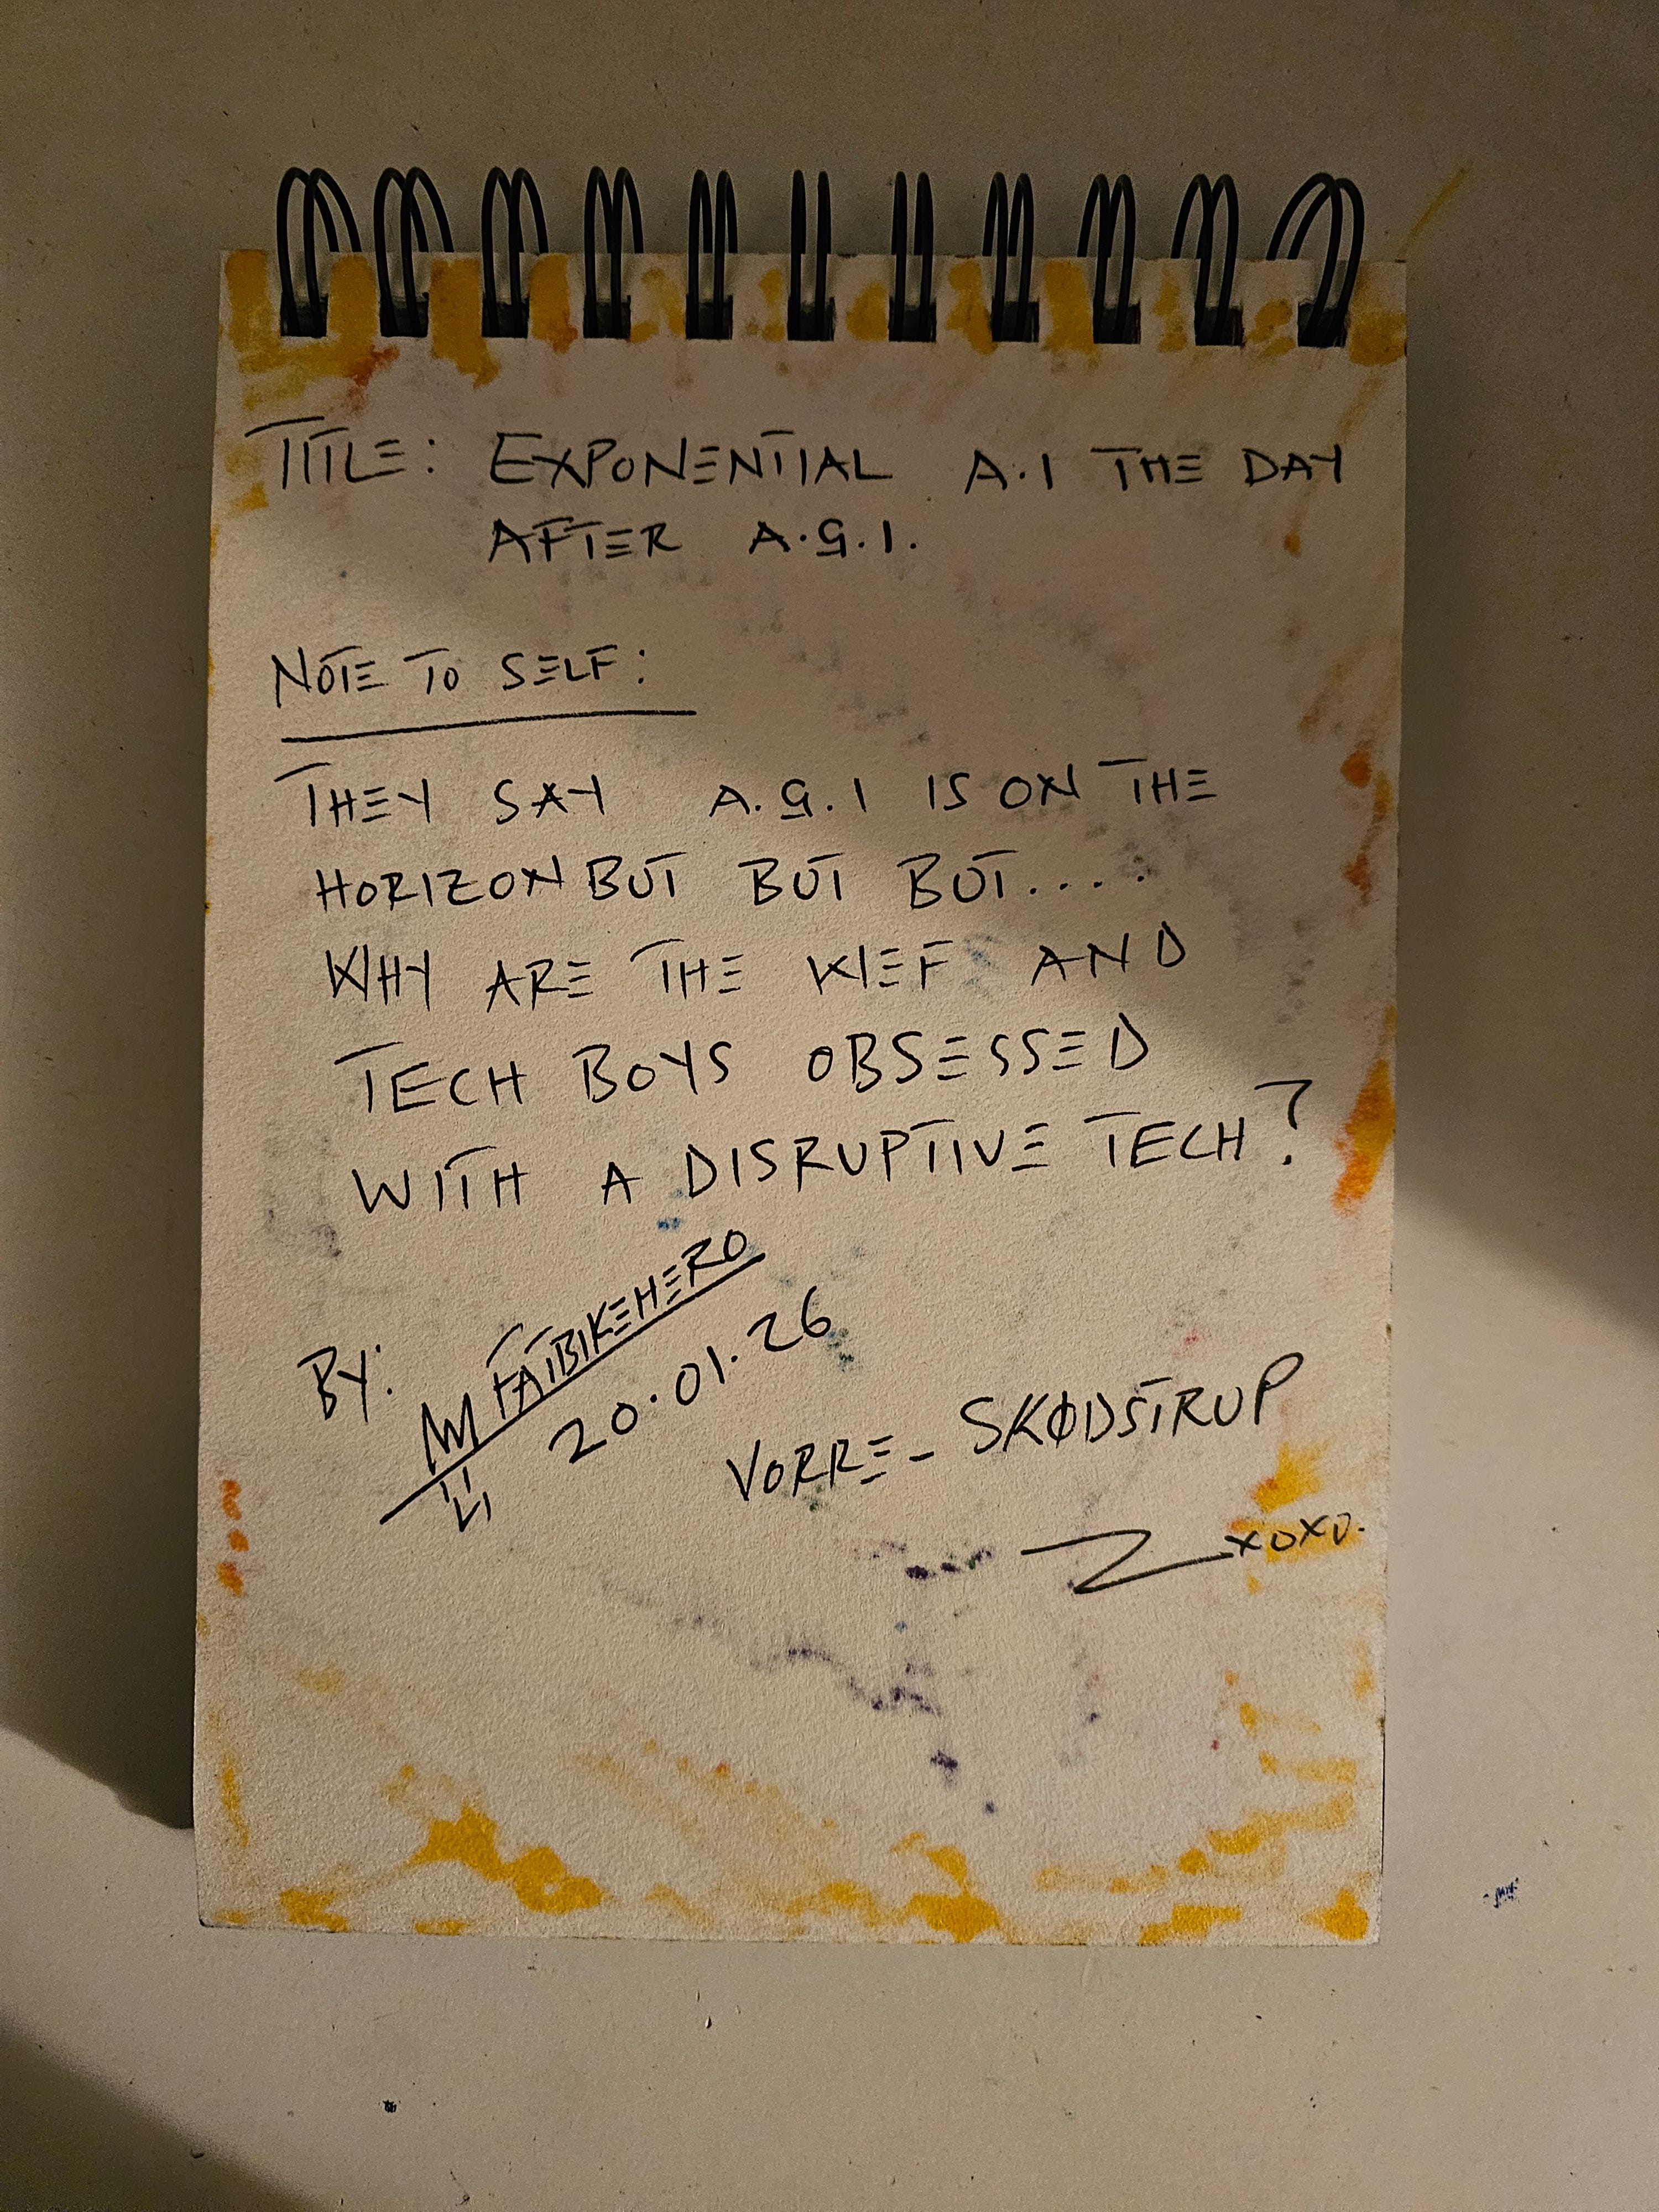 TITLE: EXPONENTIAL A.I THE DAY
AFTER A.G.I.
NOTE TO SELF:
THEY SAY A.G.I IS ON THE
HORIZON BUT BUT BUT....
WHY ARE THE WEF AND
TECH BOYS OBSESSED
WITH A DISRUPTIVE TECH?
BY: FATBIKEHERO
20.01.26
VORRE - SKØDSTRUP
XOXO.